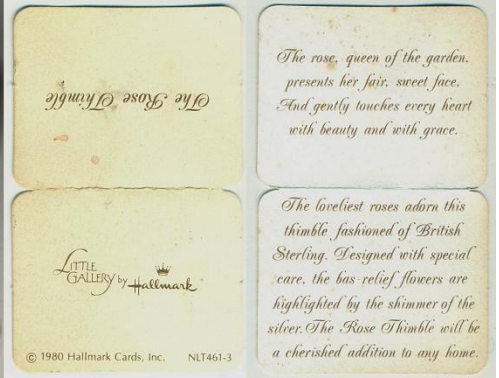 The Rose Thimble
LITTLE
GALLERY by Hallmark™
© 1980 Hallmark Cards, Inc. NLT461-3
The rose, queen of the garden,
presents her fair, sweet face.
And gently touches every heart
with beauty and with grace.
The loveliest roses adorn this
thimble fashioned of British
Sterling. Designed with special
care, the bas-relief flowers are
highlighted by the shimmer of the
silver. The Rose Thimble will be
a cherished addition to any home.